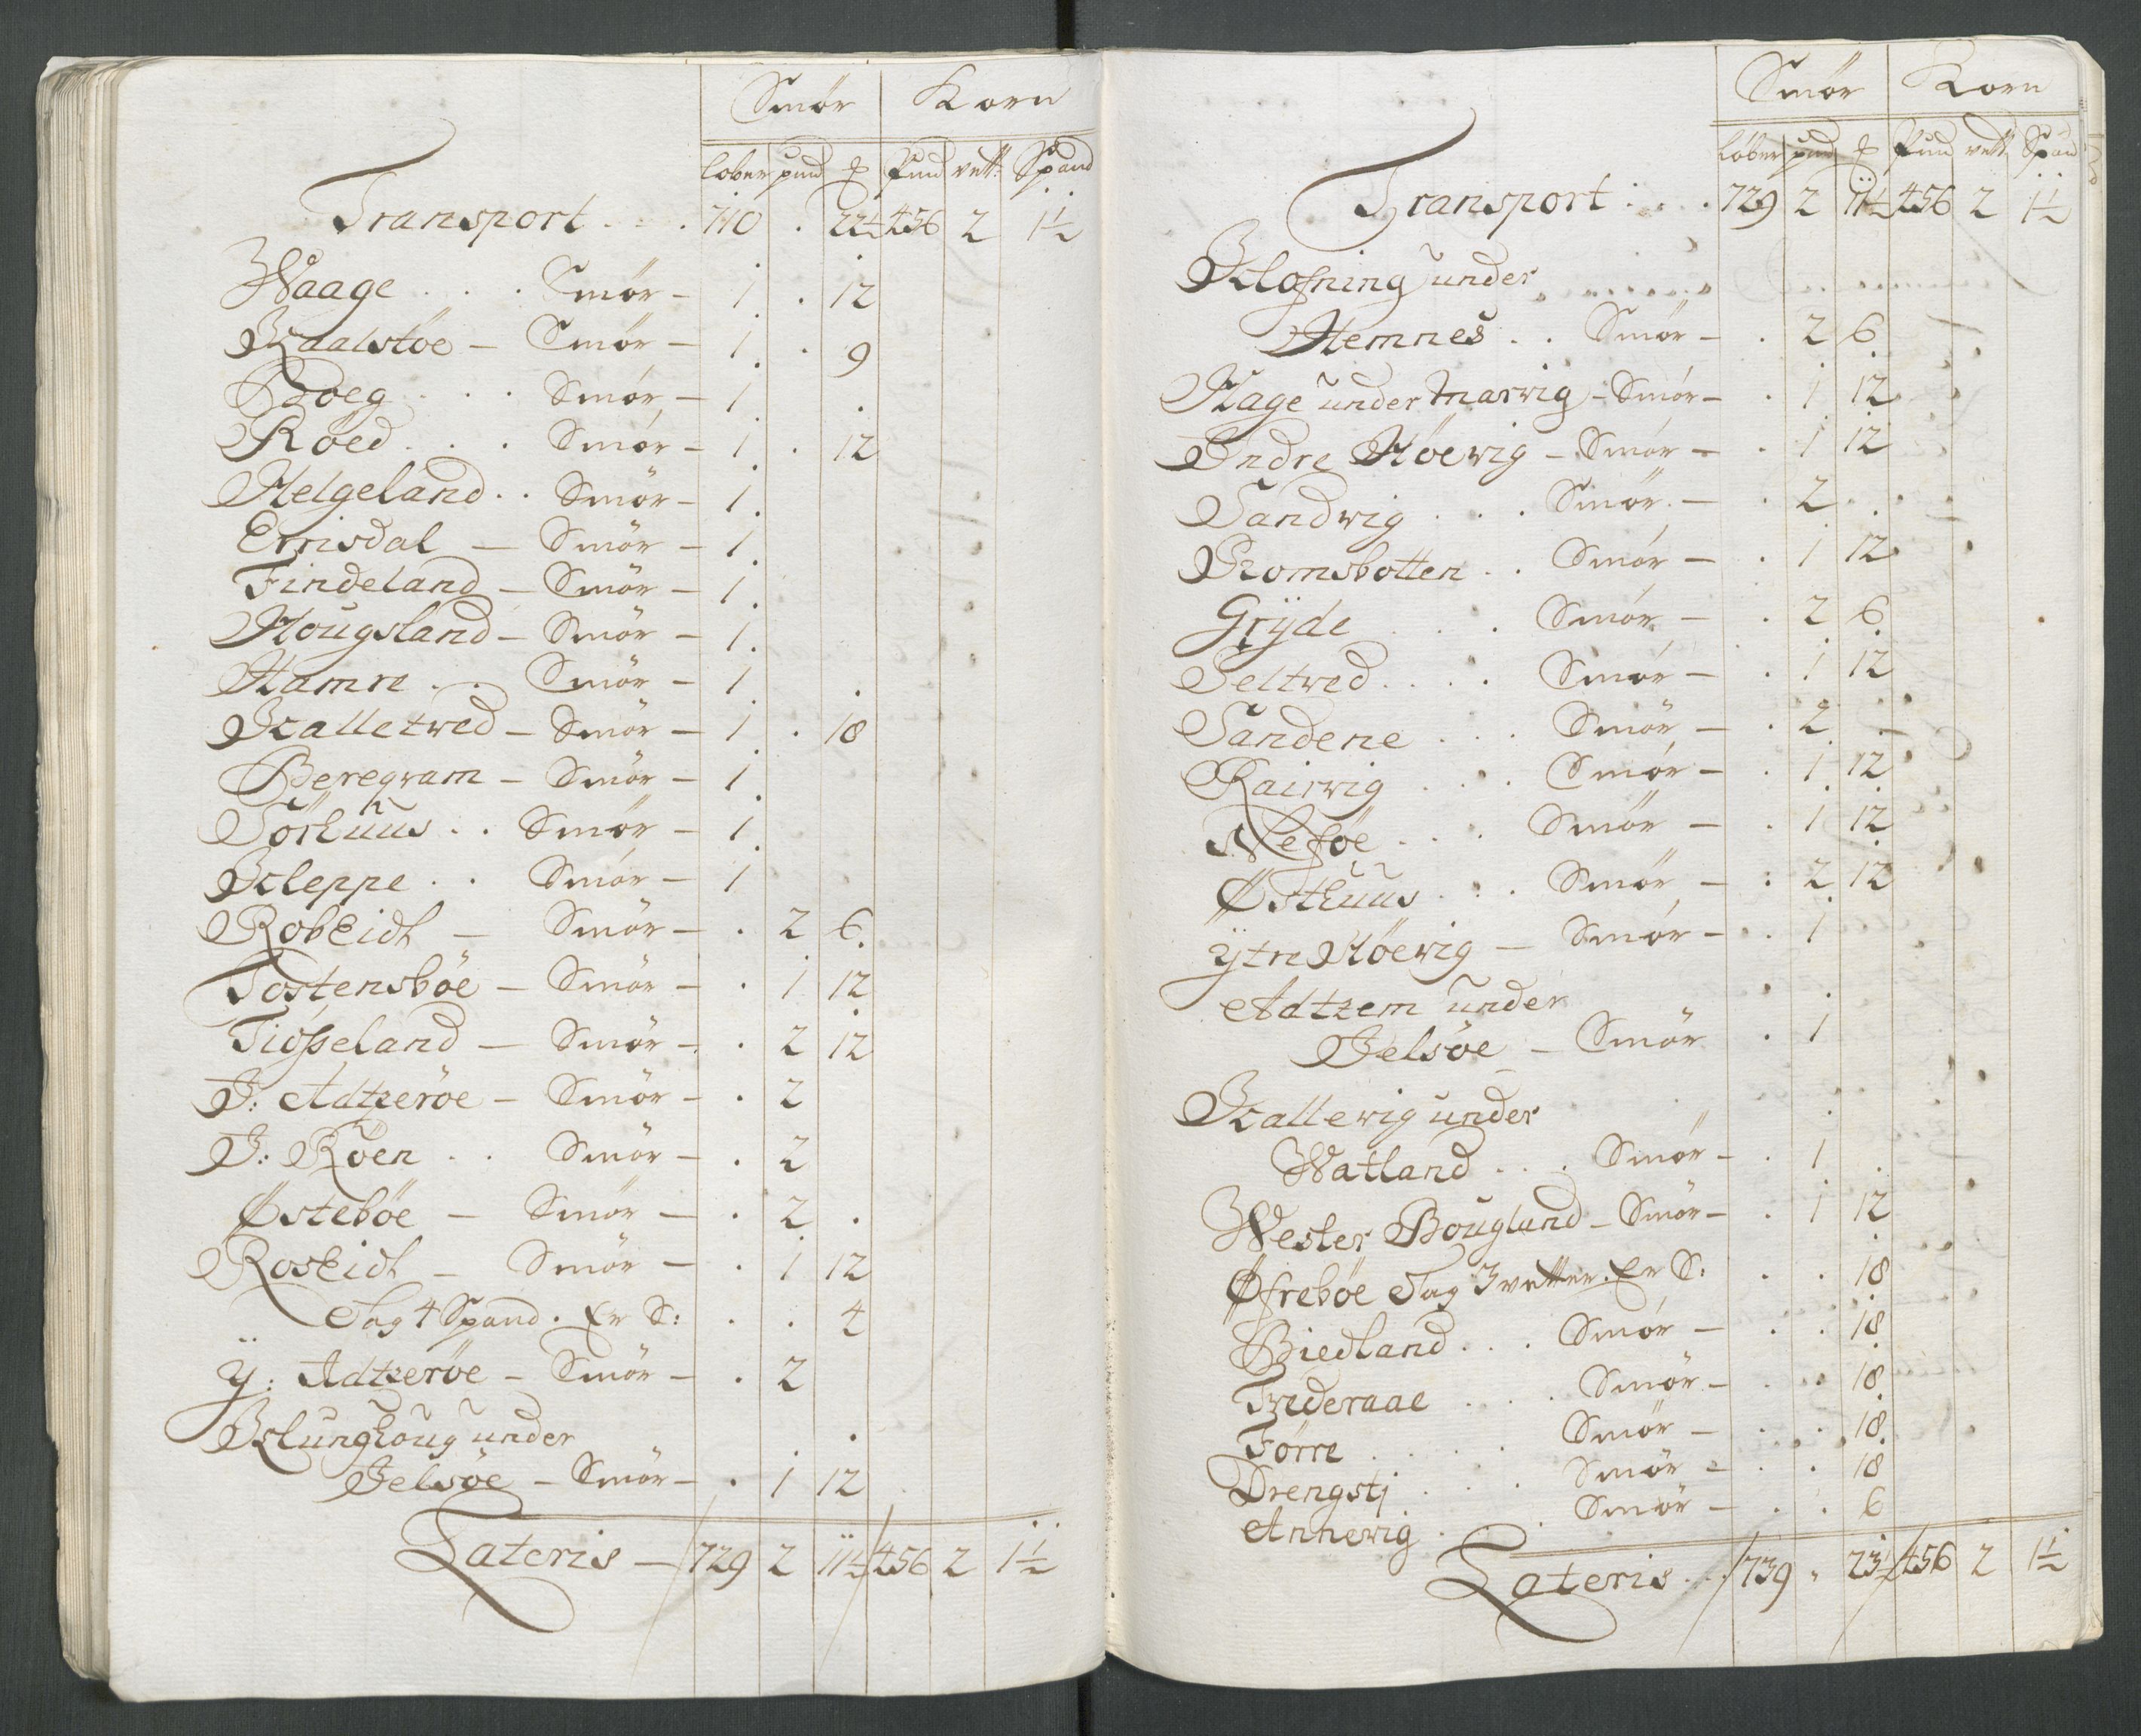 Smör Korn
lober pund ℔ Pund vett: Spand
Transport . . . 710 . 22½ 456 2 1½
Waage . . . Smör – 1 . 12
Kaalstöe – Smör – 1 . 9
Boeg . . . Smör – 1 .
Röed . . . Smör – 1 . 12
Helgeland . . Smör – 1
Errisdal – Smör – 1
Findeland – Smör – 1
Hougsland – Smör – 1
Hamre . . Smör – 1 .
Kalletved – Smör – 1 . 18
Beregvam – Smör – 1
Sörhuus . . Smör – 1
Kleppe . . Smör – 1
Robeidt – Smör – . 2 6
Tostensböe – Smör – . 1 12
Tiösseland – Smör – . 2 12
J: Adtzeröe – Smör – . 2
J: Röen . . Smör – . 2
Østeböe – Smör – . 2 .
Roseidt – Smör – . 1 12
Tag 4 Spand . Er S: . . 4
Y: Adtzeröe – Smör – . 2
Klunghoug under
Jelsöe – Smör – . 1 12
Lateris – 729 2 11½ 456 2 1½
Smör Korn
lober pund ℔ Pund vett Spand
Transport : . . 729 2 11½ 456 2 1½
Klofning under
Hemnes . . Smör – . 2 6
Hage under Marvig – Smör – . 1 12
Indre Höevig – Smör – . 1 12
Sandvig . . . Smör – . 2 .
Romsbotten . . Smör – . 1 12
Gryde . . . Smör – . 2 6
Teltved . . . . Smör – . 1 12
Sandene . . . Smör – . 2 .
Rairvig . . . Smör – . 1 12
Nesöe . . . Smör – . 1 12
Østhuus . . . Smör – . 2 12
Ytre Höevig – Smör – . 1
Adtzem under
Jelsöe – Smör . 1
Kallevig under
Watland . . . Smör – . 1 .
Wester Bougland – Smör – . 1 12
Øfreböe Tag 3 vetter. Er S: . . 18
Biedland . . . Smör – . . 18
Trederaae . . . Smör – . . 18
Førre . . . . Smör – . . 18
Drengstj . . . Smör – . . 18
Annevig . . . Smör – . . 6
Lateris . . . 739 . 23½ 456 2 1½